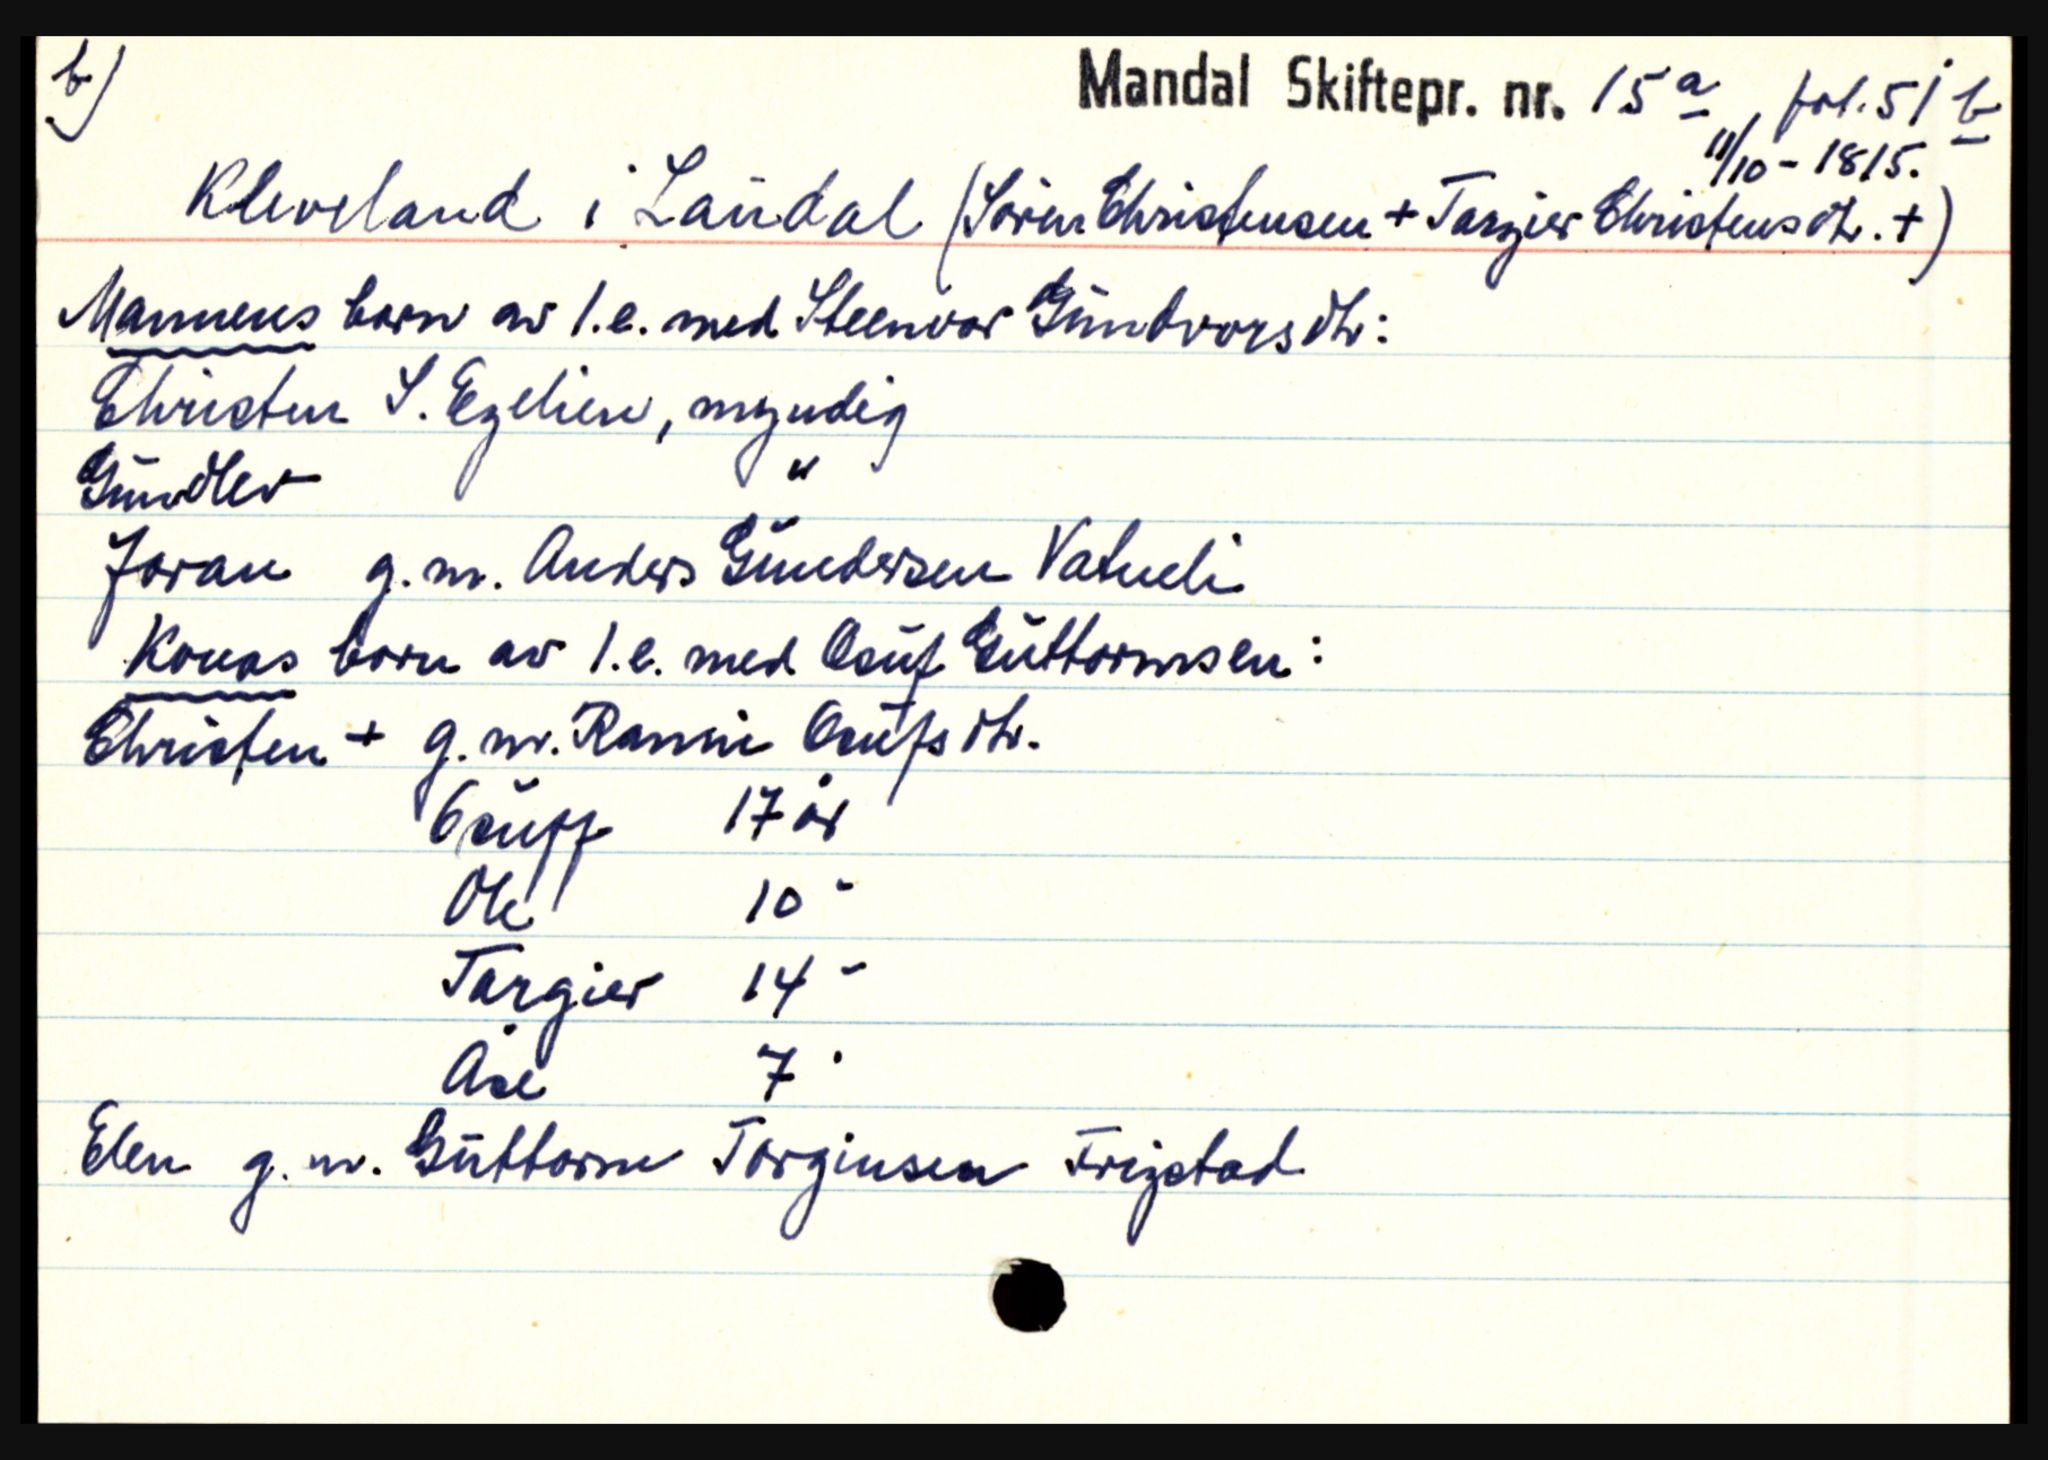 b)
Mandal Skiftepr. nr. 15a, fol. 51b
11/10 - 1815.
Kleveland i Laudal (Sören Christensen + Targier Christensdtr. +)
Mannens barn av 1.e. med Steenvor Gundvorsdtr:
Christen S. Egelien, myndig
Gunvdlev "
Joran g.m. Anders Gundersen Vatneli
Konas barn av 1.e. med Osuf Guttormsen:
Christen + g.m. Rannie Osufsdtr.
Osuff 17 år
Ole 10 -
Targier 14 -
Åse 7 -
Elen g.m. Guttorm Torginsen Frigstad